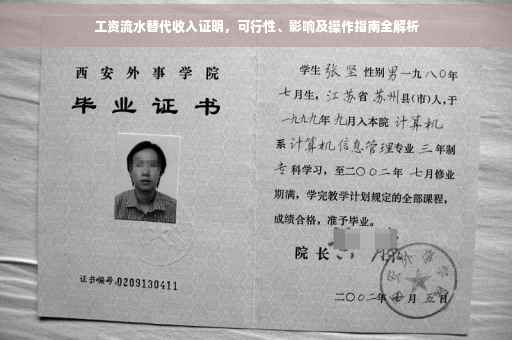 工资流水替代收入证明，可行性、影响及操作指南全解析
西安外事学院
毕业证书
证书编号:0209130411
学生 张坚 性别男一九八〇年
七月生，江苏省 苏州县(市)人,于
一九九九年九月入本院 计算机
系计算机信息管理专业 三 年制
专科学习，至二〇〇二年 七月修业
期满，学完教学计划规定的全部课程，
成绩合格，准予毕业。
院长
二〇〇二年 七 月 五 日